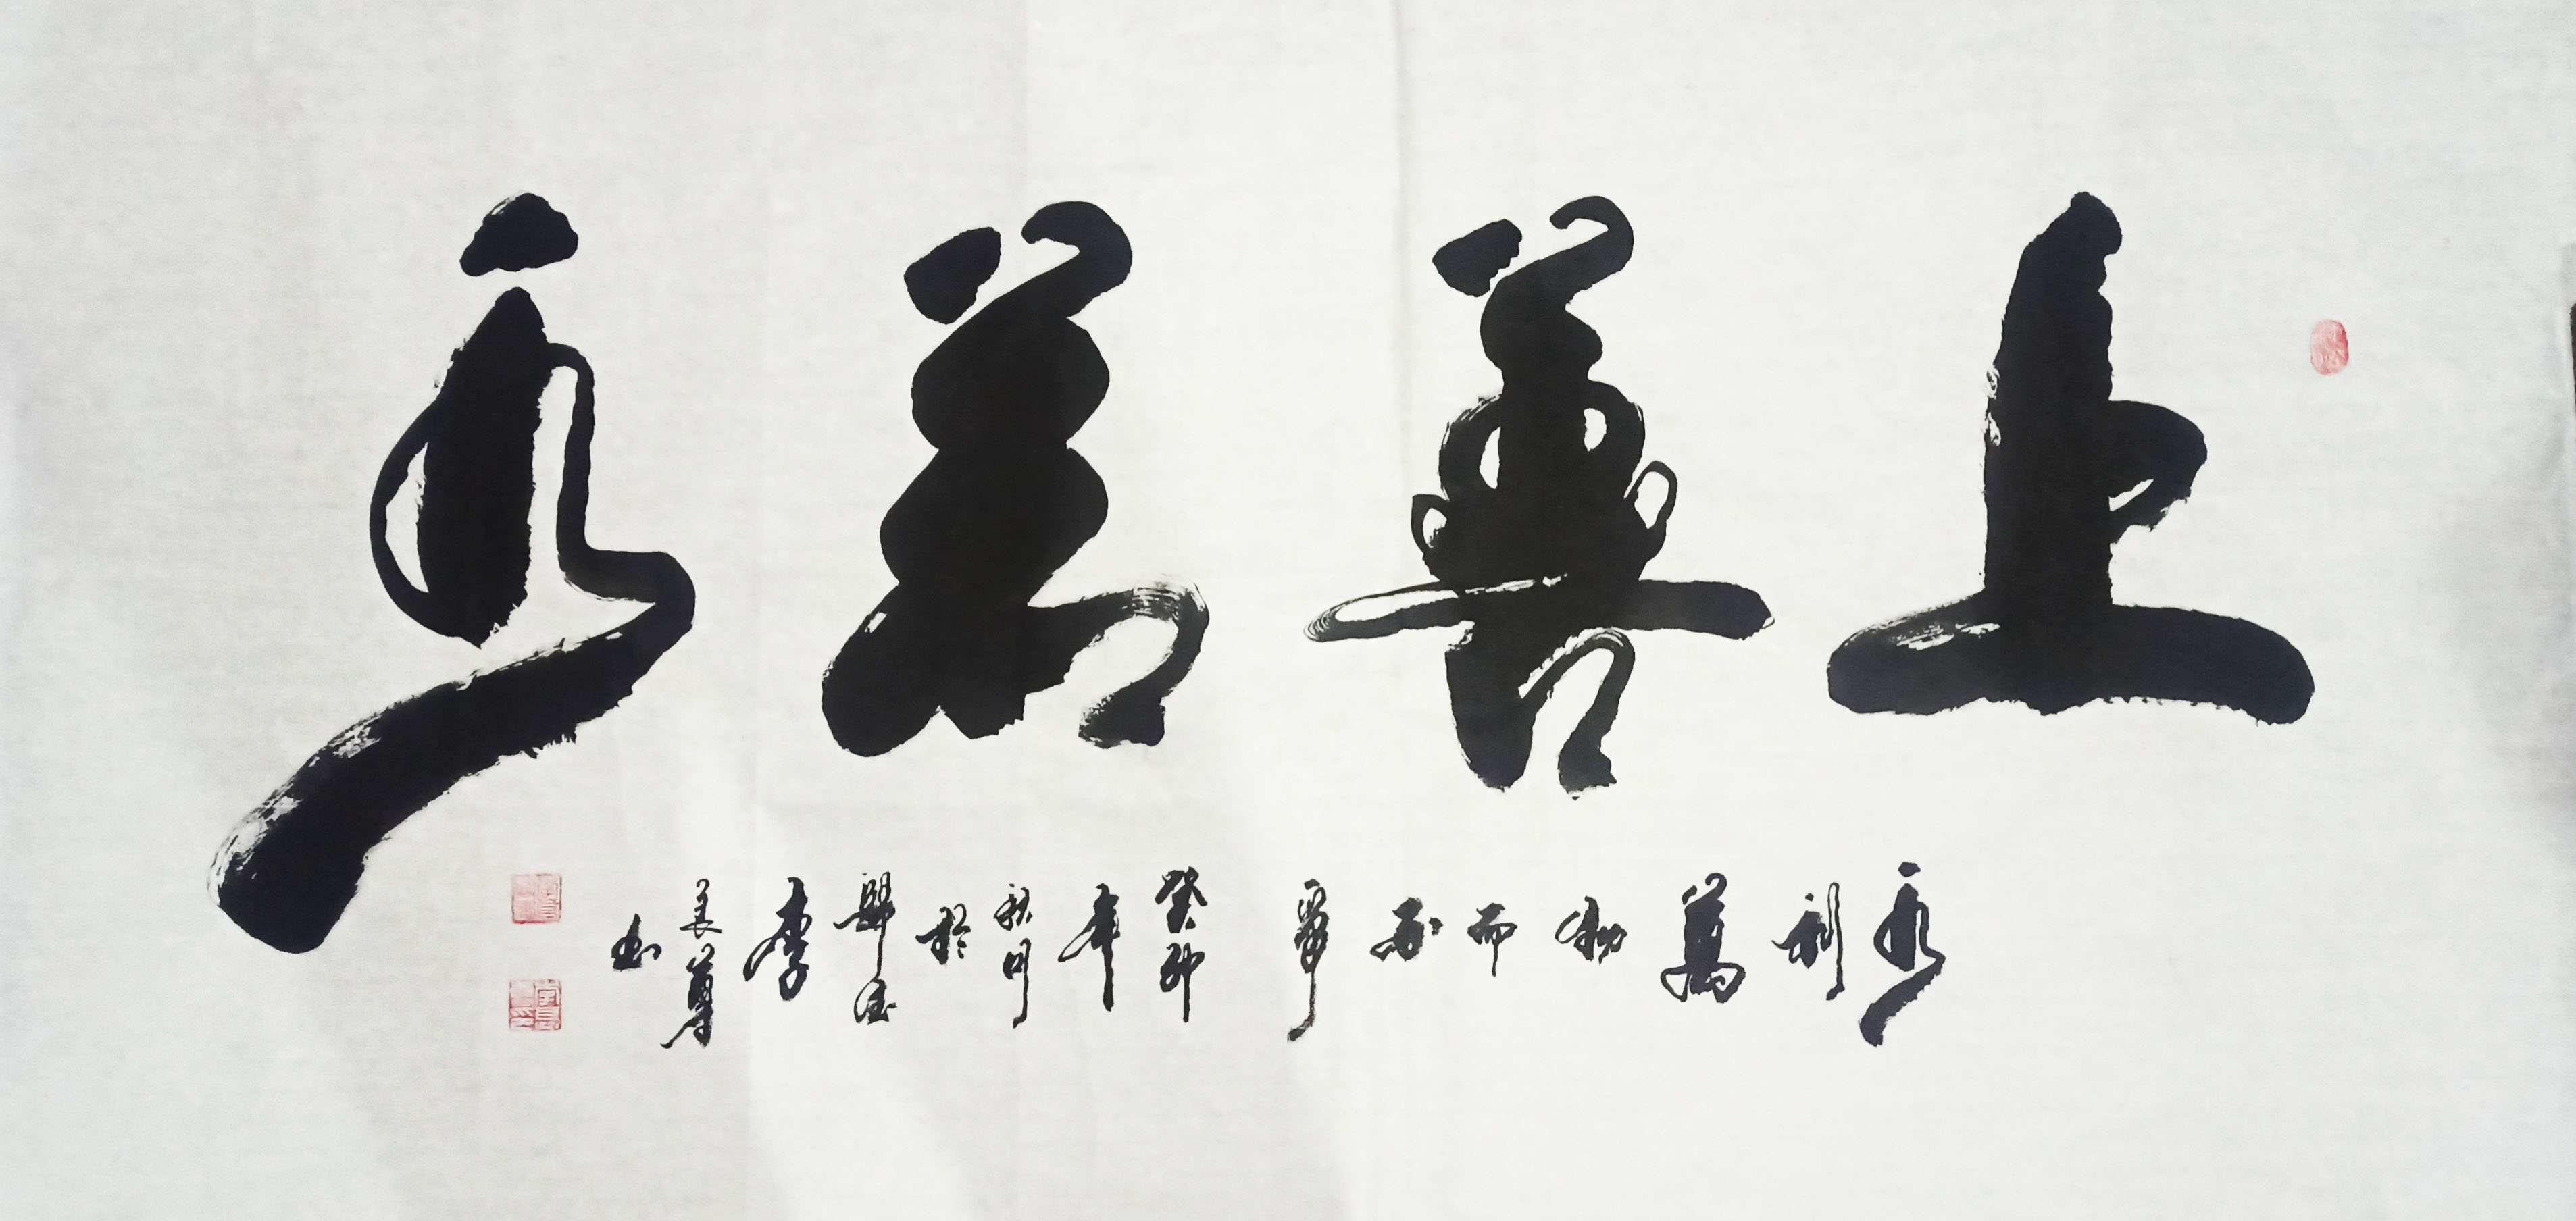 上善若水
水利萬物而不爭
癸卯年秋月於
李美尊書